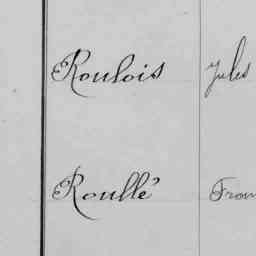 Roulois Jules
Roullé